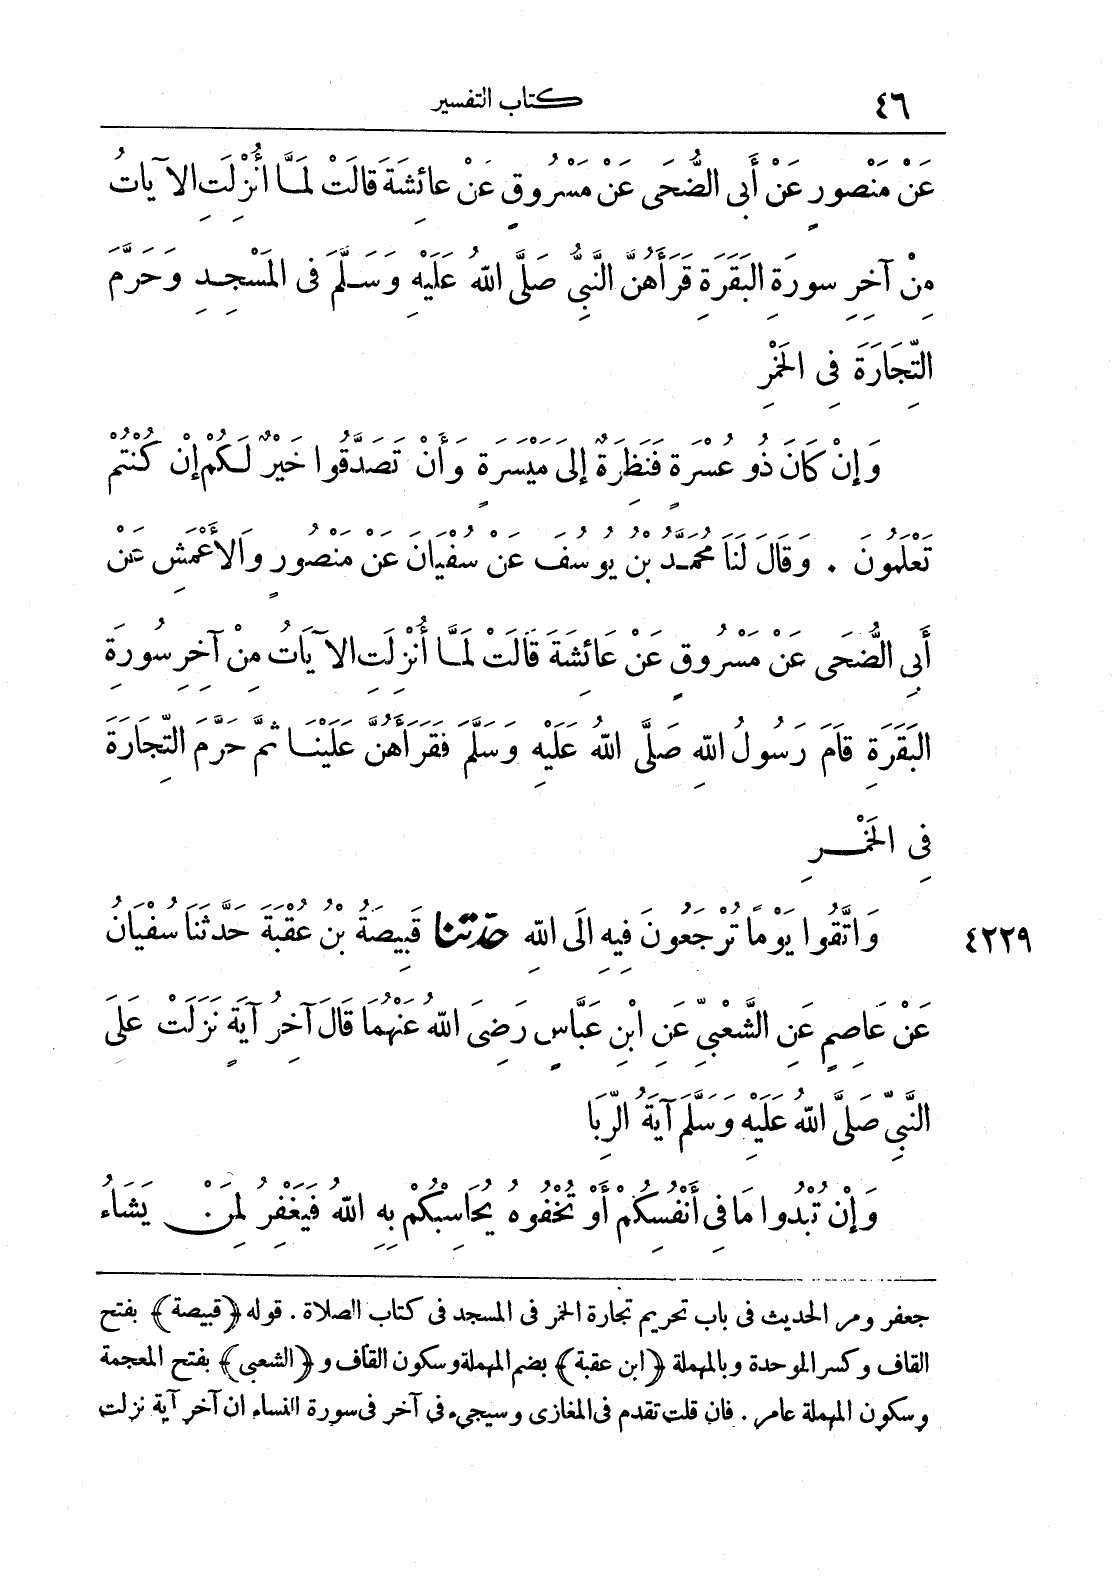 ٤٦ كتاب التفسير
عَنْ مَنْصُورٍ عَنْ أَبِى الضُّحَى عَنْ مَسْرُوقٍ عَنْ عَائِشَةَ قَالَتْ لَمَّا أُنْزِلَتِ الآيَاتُ
مِنْ آخِرِ سورَةِ البَقَرَةِ قَرَأَهُنَّ النَّبِىُّ صَلَّى اللهُ عَلَيْهِ وَسَلَّمَ فى المَسْجِدِ وَحَرَّمَ
التِّجَارَةَ فِى الخَمْرِ
وَإِنْ كَانَ ذُو عُسْرَةٍ فَنَظِرَةٌ إِلَى مَيْسَرَةٍ وَأَنْ تَصَدَّقُوا خَيْرٌ لَكُمْ إِنْ كُنْتُمْ
تَعْلَمُونَ . وَقَالَ لَنَا مُحَمَّدُ بْنُ يُوسُفَ عَنْ سُفْيَانَ عَنْ مَنْصُورٍ وَالأَعْمَشِ عَنْ
أَبِى الضُّحَى عَنْ مَسْرُوقٍ عَنْ عَائِشَةَ قَالَتْ لَمَّا أُنْزِلَتِ الآيَاتُ مِنْ آخِرِ سُورَةِ
البَقَرَةِ قَامَ رَسُولُ اللهِ صَلَّى اللهُ عَلَيْهِ وَسَلَّمَ فَقَرَأَهُنَّ عَلَيْنَا ثُمَّ حَرَّمَ التِّجَارَةَ
فِى الخَمْرِ
٤٢٢٩ وَاتَّقُوا يَوْمًا تُرْجَعُونَ فِيهِ إِلَى اللهِ حَدَّثَنَا قَبِيصَةُ بْنُ عُقْبَةَ حَدَّثَنَا سُفْيَانُ
عَنْ عَاصِمٍ عَنِ الشَّعْبِىِّ عَنِ ابْنِ عَبَّاسٍ رَضِىَ اللهُ عَنْهُمَا قَالَ آخِرُ آيَةٍ نَزَلَتْ عَلَى
النَّبِىِّ صَلَّى اللهُ عَلَيْهِ وَسَلَّمَ آيَةُ الرِّبَا
وَإِنْ تُبْدُوا مَا فِى أَنْفُسِكُمْ أَوْ تُخْفُوهُ يُحَاسِبْكُمْ بِهِ اللهُ فَيَغْفِرُ لِمَنْ يَشَاءُ
جعفر ومر الحديث فى باب تحريم تجارة الخمر فى المسجد فى كتاب الصلاة . قوله ﴿قبيصة﴾ بفتح
القاف وكسر الموحدة وبالمهملة ﴿ابن عقبة﴾ بضم المهملة وسكون القاف و ﴿الشعبى﴾ بفتح المعجمة
وسكون المهملة عامر . فان قلت تقدم فى المغازى وسيجىء فى آخر فى سورة النساء ان آخر آية نزلت